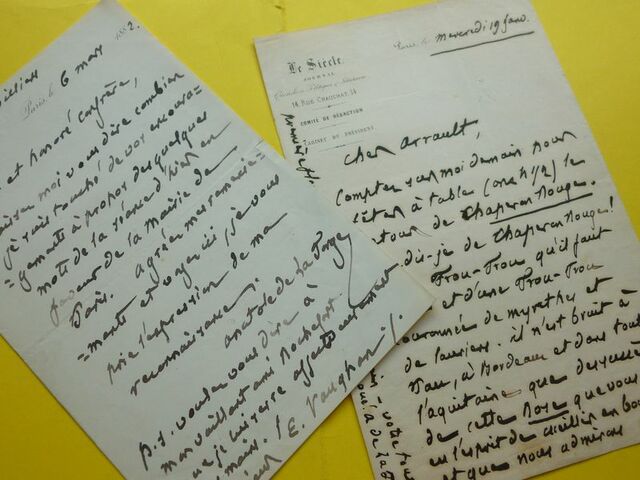 Paris, le 6 mars 1882.
et honoré confrère,
moi vous dire combien
je suis touché de vos encoura=
=gements à propos des quelques
mots de la séance d'hier en
faveur de la mairie de
Paris. agréez mes remercie=
=ments et croyez ici, je vous
prie l'expression de ma
reconnaissance.
anatole de La Forge
p.s. voulez vous dire à
mon vaillant ami Rochefort
que je lui serre affectueusement
main.
E. Vaughan
Le Siècle
JOURNAL
14, RUE CHAUCHAT, 14
COMITÉ DE RÉDACTION
CABINET DU PRÉSIDENT
Paris, le mercredi 19 Janv.
Cher arrault,
Comptez sur moi demain pour
fêter à table (onze h 1/2) le
retour de Chaperon Rouge.
dis-je de Chaperon Rouge!
Frou-Frou qu'il faut
et d'une Frou-Frou
couronnée de myrthes et
de lauriers. il n'est bruit à
Pau, à Bordeaux et dans tout
l'aquitaine que des succès
de cette Rose que vous
eu l'esprit de cueillir en
et que nous admirons